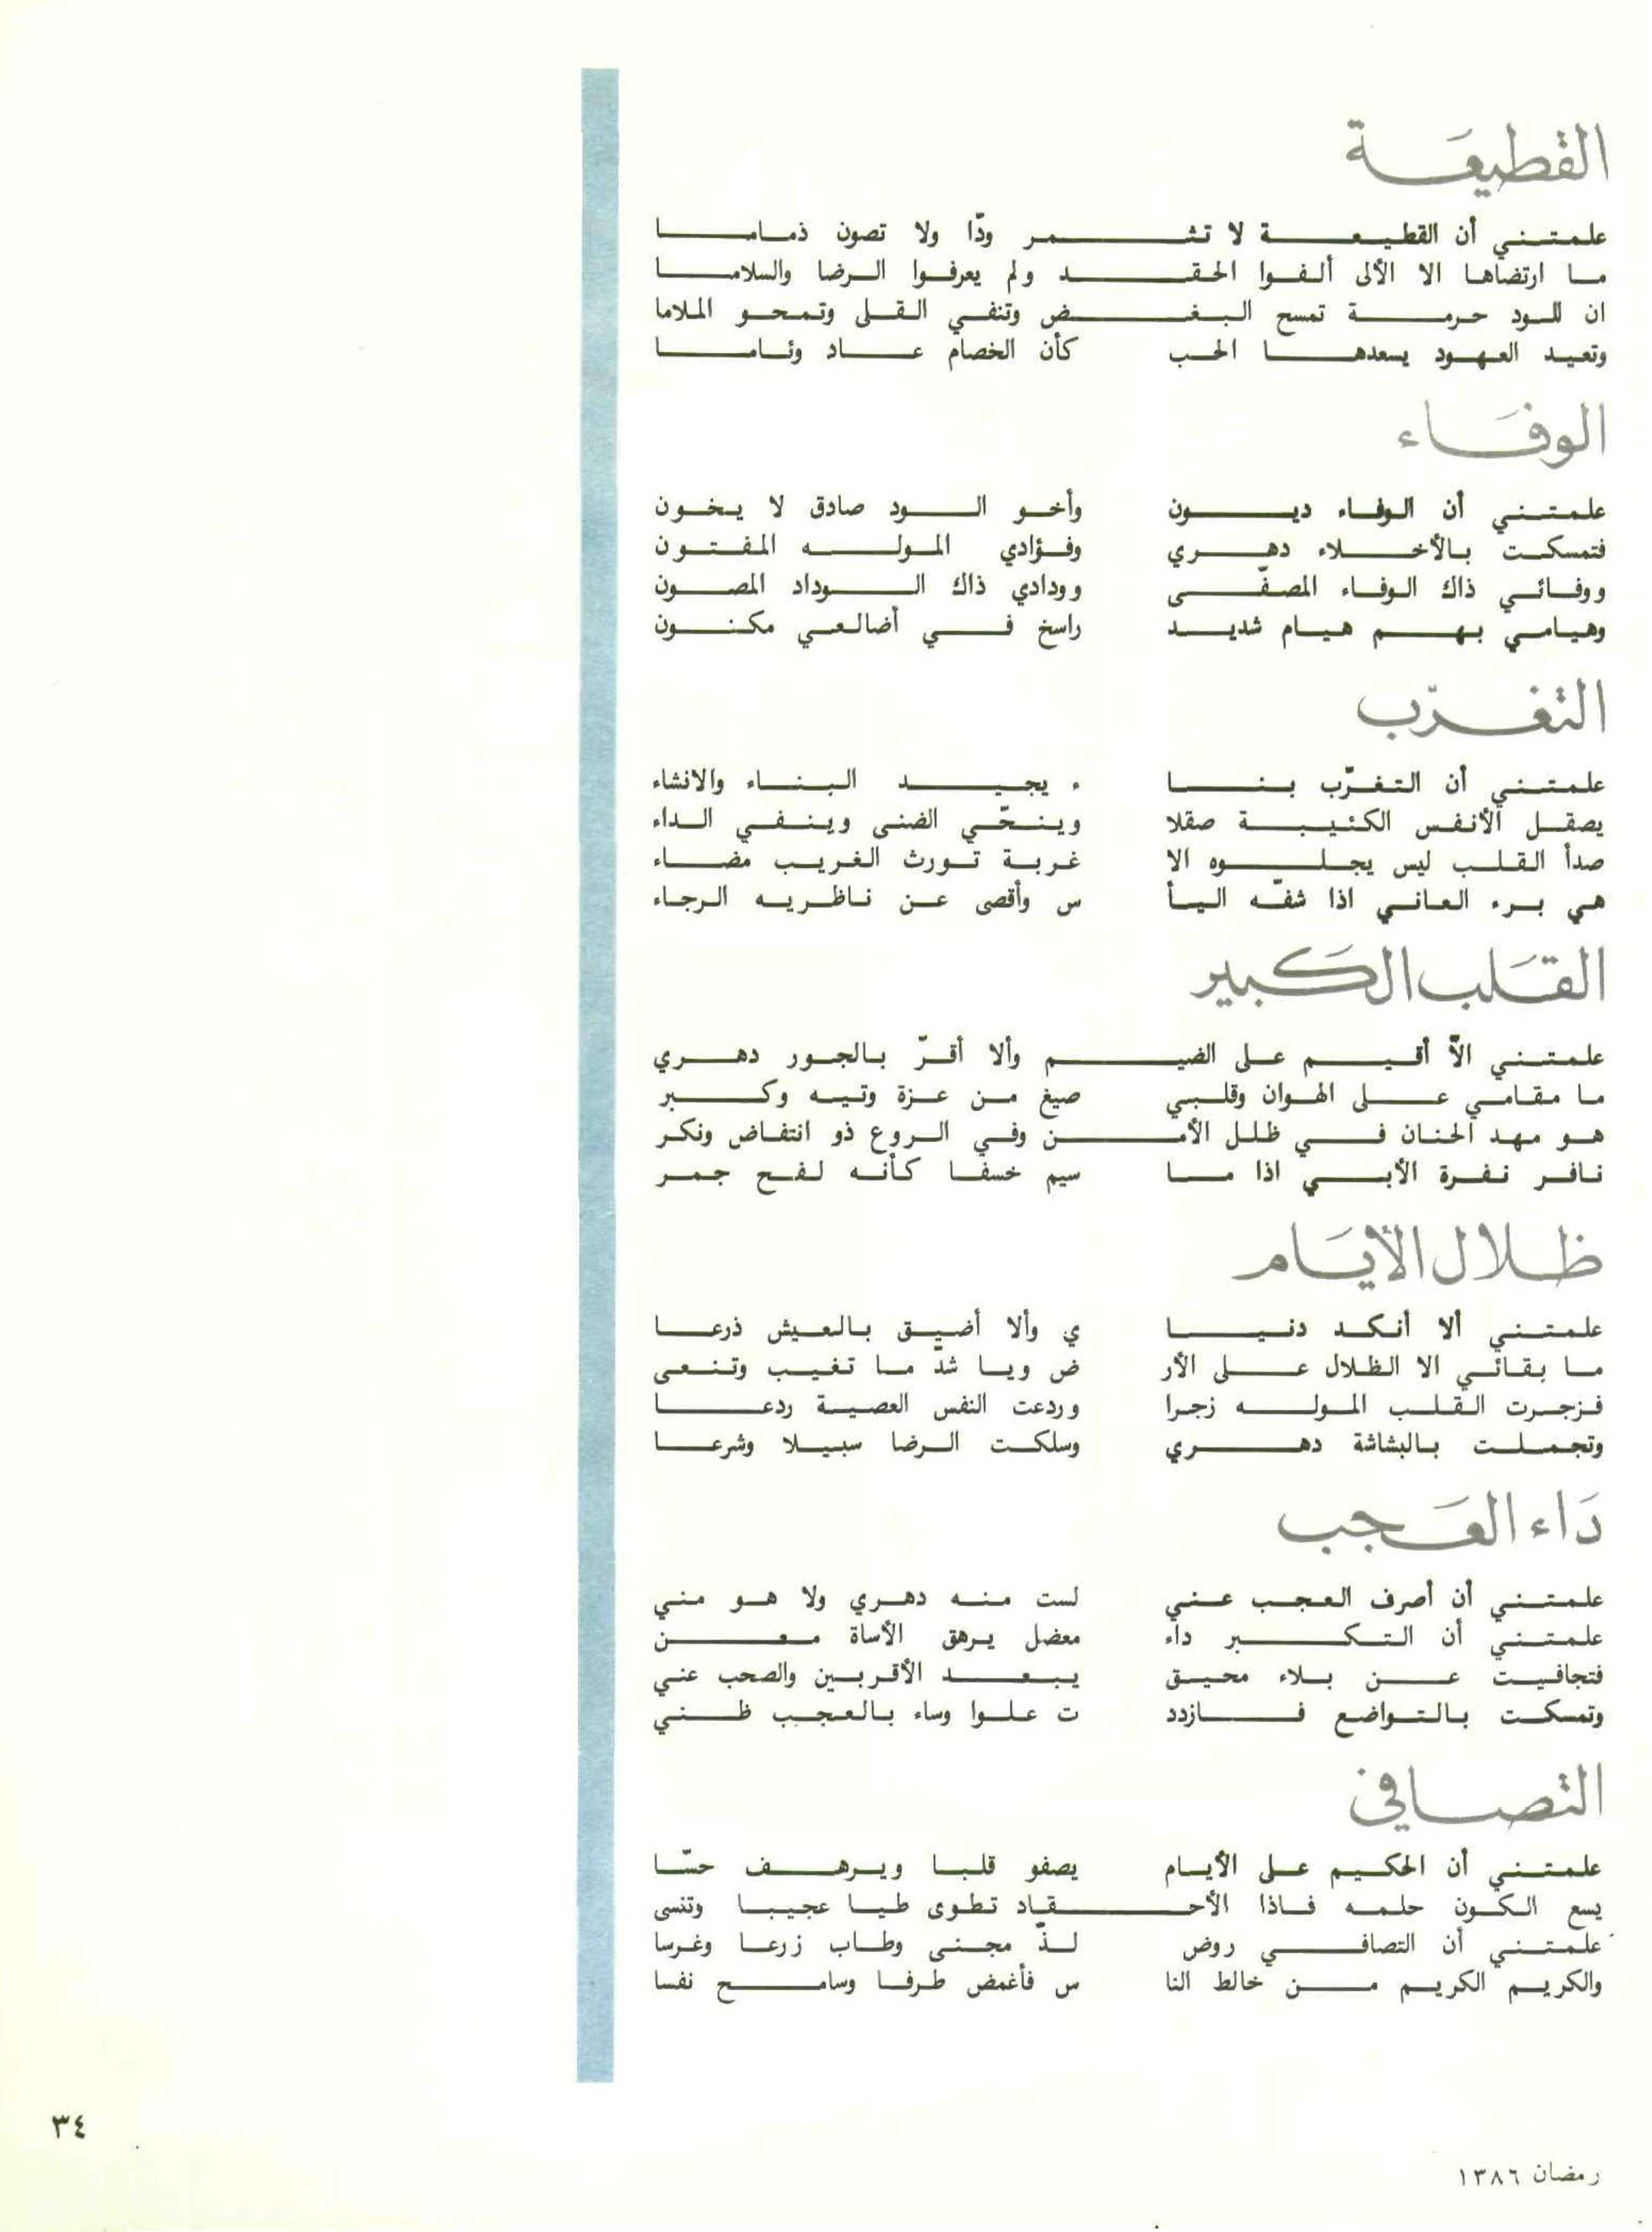 القطيعَة
علمتني أن القطيعة لا تثمر ودّا ولا تصون ذماما
ما ارتضاها الا الألى ألفوا الحقد ولم يعرفوا الرضا والسلاما
ان للود حرمة تمسح البغض وتنفي القلى وتمحو الملاما
وتعيد العهود يسعدها الحب كأن الخصام عاد وئاما
الوفَاء
علمتني أن الوفاء ديون وأخو الود صادق لا يخون
فتمسكت بالأخلاء دهري وفؤادي الموله المفتون
ووفائي ذاك الوفاء المصفّى وودادي ذاك الوداد المصون
وهيامي بهم هيام شديد راسخ في أضالعي مكنون
التغرّب
علمتني أن التغرّب بنا ء يجيد البناء والانشاء
يصقل الأنفس الكئيبة صقلا وينحّي الضنى وينفي الداء
صدأ القلب ليس يجلوه الا غربة تورث الغريب مضاء
هي برء العاني اذا شفّه اليأ س وأقصى عن ناظريه الرجاء
القَلب الكَبير
علمتني الاّ أقيم على الضيم وألا أقرّ بالجور دهري
ما مقامي على الهوان وقلبي صيغ من عزة وتيه وكبر
هو مهد الحنان في ظلل الأمن وفي الروع ذو انتفاض ونكر
نافر نفرة الأبي اذا ما سيم خسفا كأنه لفح جمر
ظلال الأيَام
علمتني ألا أنكد دنيا ي وألا أضيق بالعيش ذرعا
ما بقائي الا الظلال على الأر ض ويا شدّ ما تغيب وتنعى
فزجرت القلب الموله زجرا وردعت النفس العصية ردعا
وتجملت بالبشاشة دهري وسلكت الرضا سبيلا وشرعا
دَاء العَجب
علمتني أن أصرف العجب عني لست منه دهري ولا هو مني
علمتني أن التكبر داء معضل يرهق الأساة معن
فتجافيت عن بلاء محيق يبعد الأقربين والصحب عني
وتمسكت بالتواضع فازدد ت علوا وساء بالعجب ظني
التصافي
علمتني أن الحكيم على الأيام يصفو قلبا ويرهف حسّا
يسع الكون حلمه فاذا الأحقاد تطوى طيا عجيبا وتنسى
علمتني أن التصافي روض لذّ مجنى وطاب زرعا وغرسا
والكريم الكريم من خالط النا س فأغمض طرفا وسامح نفسا
٣٤
رمضان ١٣٨٦